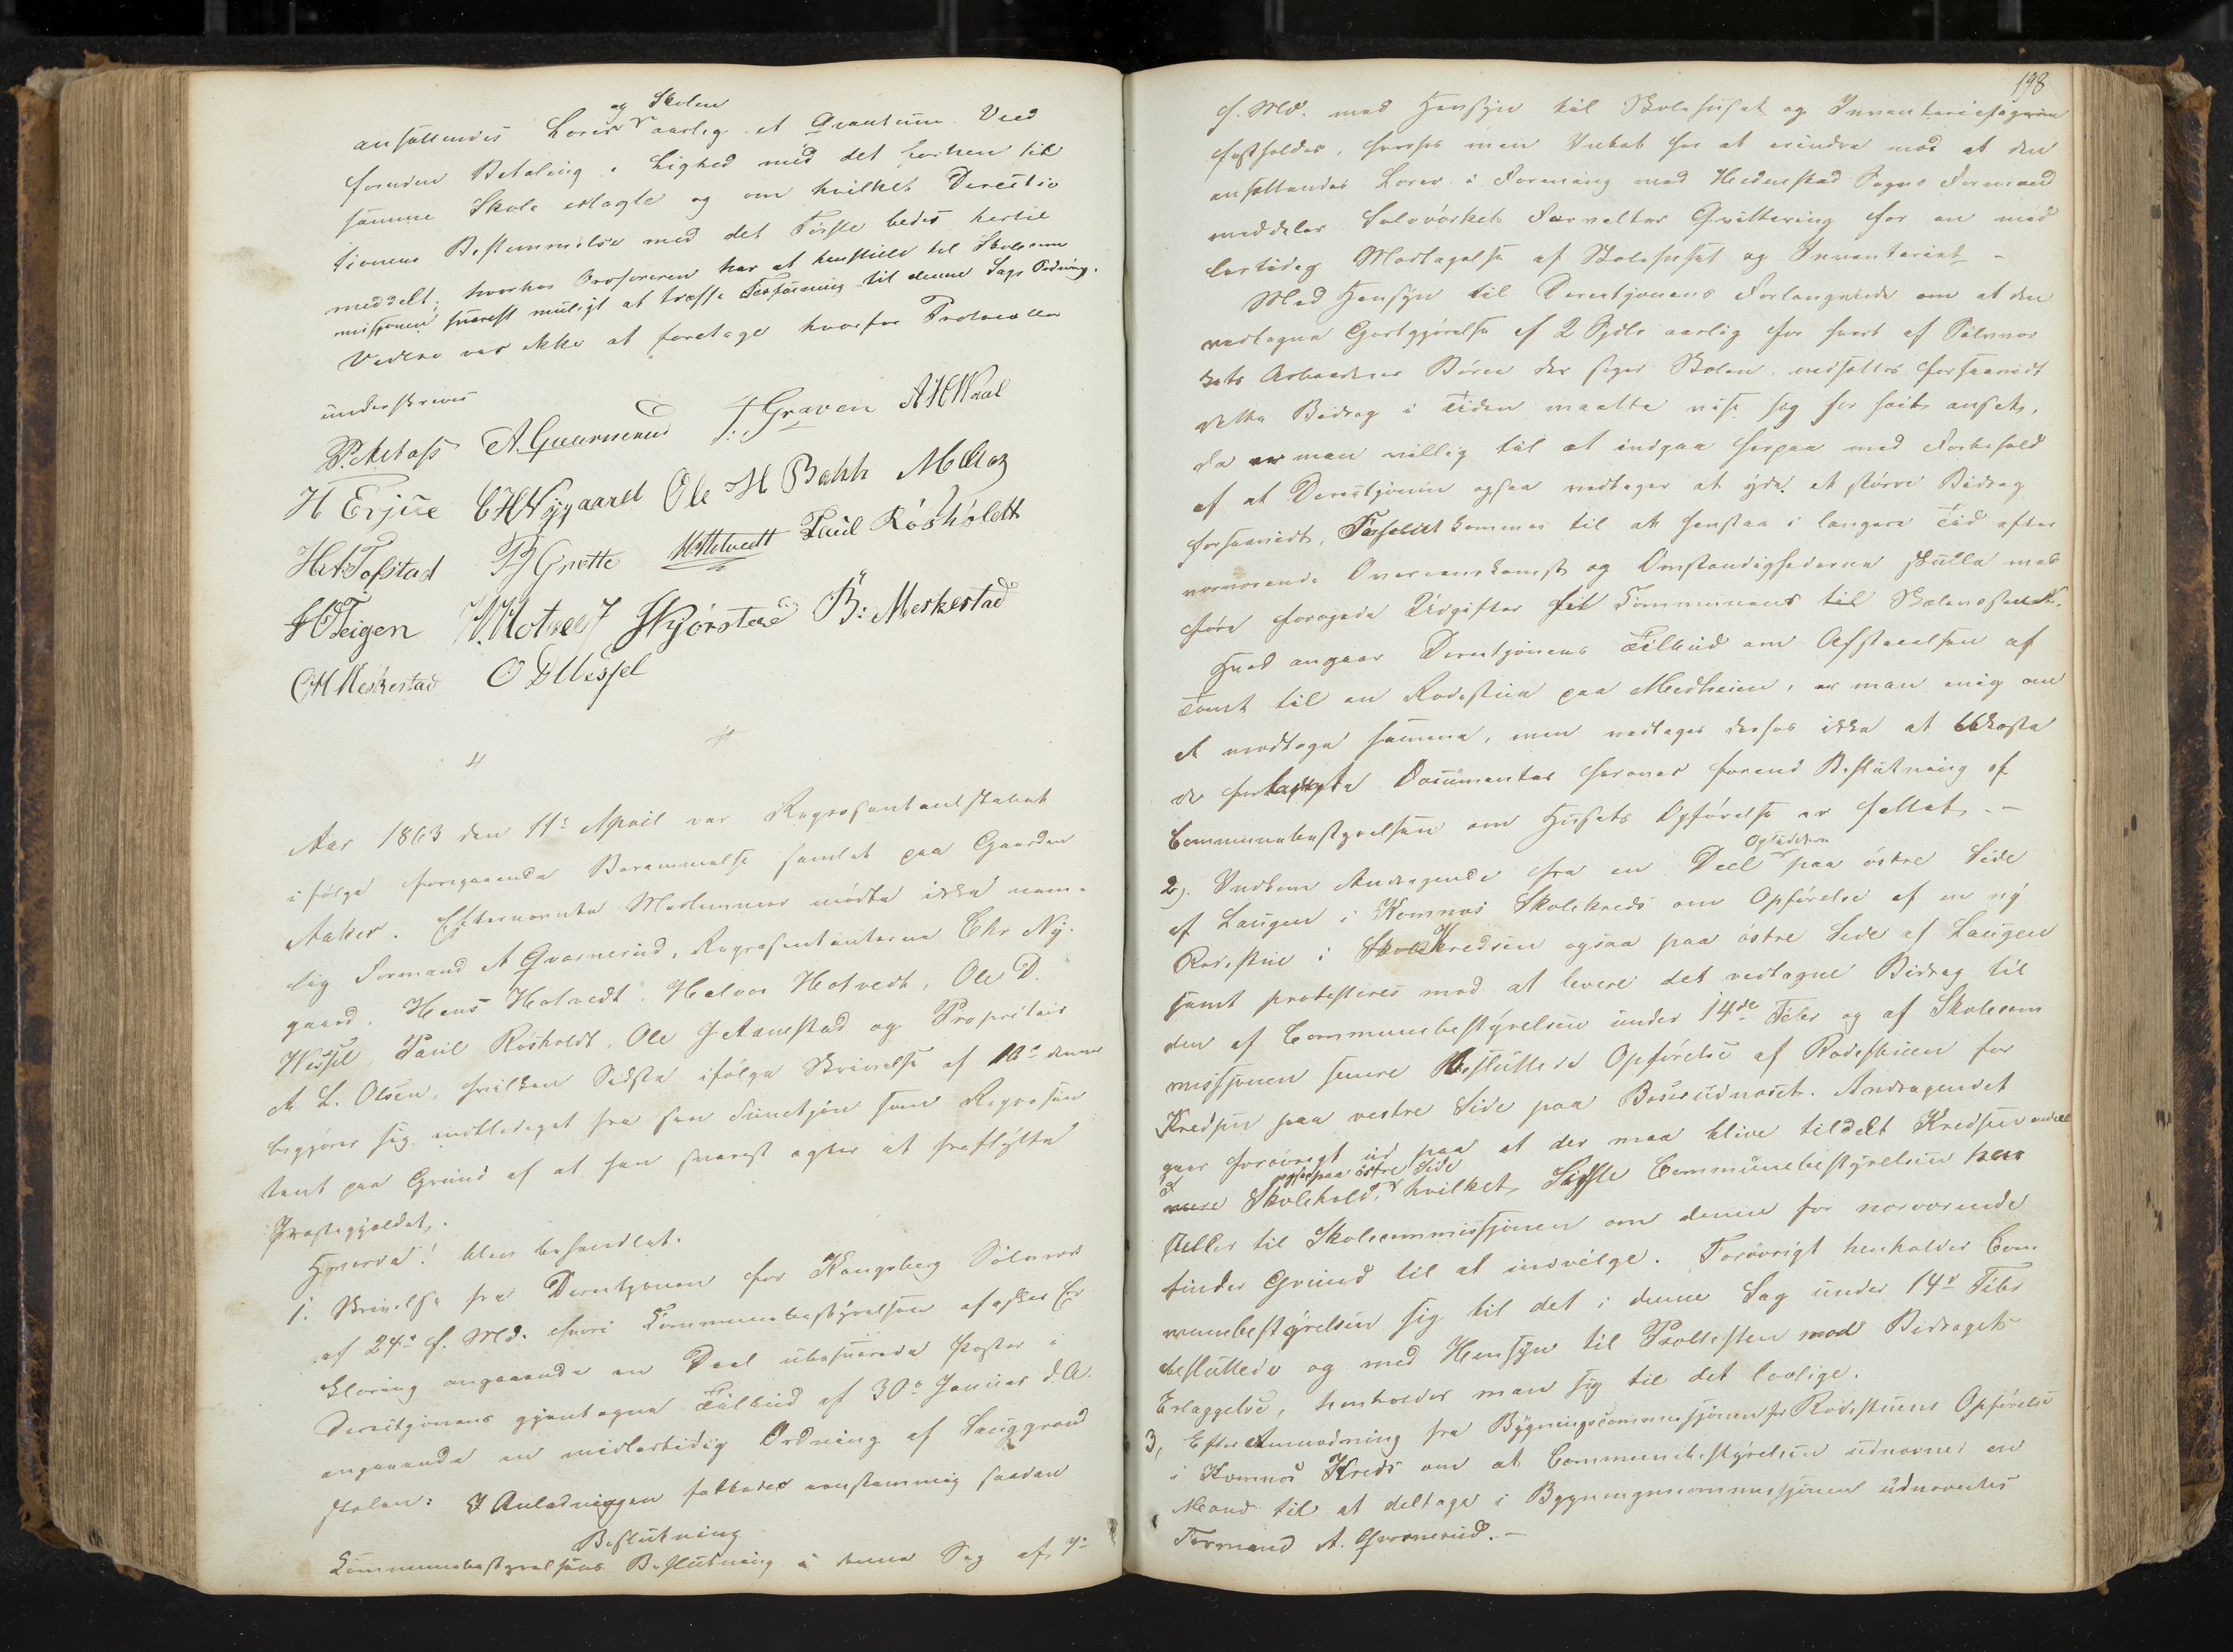 og Skolen
ansættendes Lærer aarlig et Qvantum Ved
foruden Betaling i Lighed med det herhen til
samme Skole erlagte og om hvilket Direcktio
tionens Bestemmelse med det Første bedes hertil
meddelt; hvorhos Ordføreren har at henstille til Skolecom
missionen snarest muligt at træffe Forføining til denne Sags Ordning.
Videre var ikke at foretage hvorfor Protocollen
underskrives
A. Gvarnerud J. Graven A H Waal
H Erjue C H Nygaard Ole H Bakk
H A Tofstad P J Grette Paul Rösholdt
H O Teigen Hjörstad B: Meskestad
C H Meskestad O D Wessel
Aar 1863 den 11te April var Repræsentantskabet
ifølge foregaaende Berammelse samlet paa Gaarden
Aaker. Efternævnte Medlemmer mødte ikke nem-
lig Formand A Qvarnerud, Repræsentanterne Chr Ny-
gaard, Hans Hotvedt, Halvor Hotvedt, Ole D.
Wessel, Paul Røsholdt, Ole J Aanestad og Propritair
A L. Olsen, hvilken Sidste ifølge Skrivelse af 10de dennes
begjærer sig entlediget fra sin Function som Repræsen
tant paa Grund af at han snarest agter at fraflytte
Præstegjældet.
Hvorda! blev behandlet.
1. Skrivelse fra Direcktionen for Kongsberg Sølvværk
af 24de f. Md. hvori Kommunebestyrelsen afæsker Er
klæring angaaende en Deel ubesvarede Poster i
Direcktionens gjentagne Tilbud af 30te Januar d.A.
angaaende en midlertidig Ordning af Sauggrend
skolen: I Anledningen fattedes eenstemmig saadan
Beslutning
Kommunebestyrelsens Beslutning i denne Sag af 4de
198
f. Md. med Hensyn til Skolehuset og Inventariesagerne
fastholdes, hvorfor man Intet har at erindre mod at den
ansættendes Lærer i Forening med Hedenstad Sogns Formand
meddeler Sølvværkets Forvalter Qvittering for en mid
lertidig Modtagelse af Skolehuset og Inventariet –
Med Hensyn til Direcktjonens Forlangende om at den
vedtagne Godtgjørelse af 2 Spdlr aarlig for hvert af Sølvvær
kets Arbeideres Børn der søger Skolen, nedsættes forsaavidt
dette Bidrag i Tiden maatte vise sig for høit ansat,
da er man villig til at indgaa herpaa med Forbehold
af at Direcktjonen ogsaa vedtager at yde et større Bidrag
forsaavidt, Forholdet kommer til at henstaa i længere Tid efter
nærværende Overeenskomst og Omstændighederne skulle med
føre forøgede Udgifter for Kommunens til Skolevæsenet.
Hvad angaar Direcktjonens Tilbud om Afstaaelsen af
Tomt til en Rodestue paa Medheim, er man enig om
at modtage samme, men vedtages derfor ikke at bekoste
de forlangte Documenter herover forend Beslutning af
Communebestyrelsen om Husets Opførelse er fattet. –
2). Indkom Andragende fra en Deel Opsiddere paa østre Side
af Laugen i Komnæs Skolekreds om Opførelse af en ny
Rodestue i Kredsen ogsaa paa østre Side af Laugen
samt protesteres mod at levere det vedtagne Bidrag til
den af Communebestyrelsen under 14de Febr og af Skolecom
missjonen senere besluttede Opførelse af Rodestuen for
Kredsen paa vestre Side paa Bosrudnæset. Andragendet
gaar forøvrigt ud paa at der maa blive tildelt Kredsen endeel
mere Skolehold, ogsaa paa østre Side hvilket Sidste Communebestyrelsen hen
stiller til Skolecommissjonen om denne for nærværende
finder Grund til at indvilge. Forøvrigt henholder Com
munebestyrelsen sig til det i denne Sag under 14de Febr
besluttede og med Hensyn til Protesten mod Bidragets
Erlæggelse, henholder man sig til det lovlige.
3, Efter Anmodning fra Bygningscommissjonen for Rodestuens Opførelse
i Komnæs Kreds om at Communebestyrelsen udnævner en
Mand til at deltage i Bygningscommissjonen udnævntes
Formand A. Qvarnerud. –